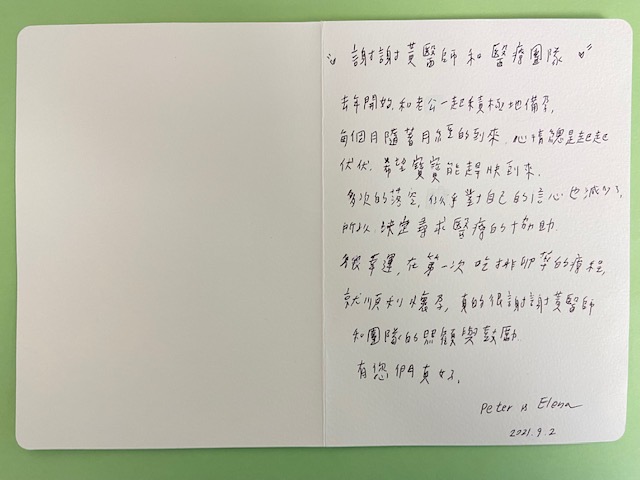 謝謝黃醫師和醫療團隊
去年開始,和老公一起積極地備孕,
每個月隨著月經的到來,心情總是起起
伏伏,希望寶寶能趕快到來.
多次的落空,似乎對自己的信心也減少了,
所以決定尋求醫療的協助.
很幸運,在第一次吃排卵藥的療程,
就順利懷孕,真的很謝謝黃醫師
和團隊的照顧與鼓勵.
有您們真好.
Peter & Elena
2021.9.2